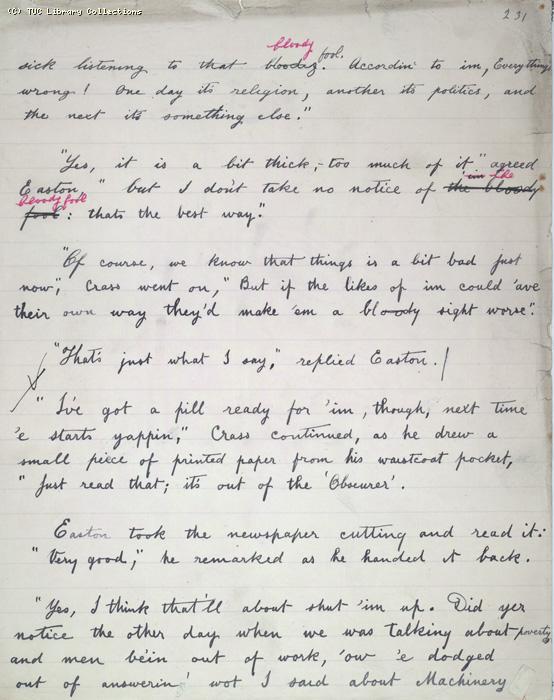 (C) TUC Library Collections
231
bloody fool.
sick listening to that bloody. Accordin' to im, Everythings
wrong! One day its religion, another its politics, and
the next its something else."
"Yes, it is a bit thick;- too much of it" agreed
'im the
Easton, "but I don't take no notice of the bloody
bloody fool
fool: thats the best way."
"Of course, we know that things is a bit bad just
now", Crass went on, "But if the likes of im could 'ave
their own way they'd make 'em a bloody sight worse".
"That's just what I say," replied Easton.
"I've got a pill ready for 'im, though, next time
'e starts yappin," Crass continued, as he drew a
small piece of printed paper from his waistcoat pocket,
"Just read that; its out of the 'Obscurer'.
Easton took the newspaper cutting and read it:
"Very good," he remarked as he handed it back.
"Yes, I think that'll about shut 'im up. Did yer
notice the other day when we was talking about poverty
and men bein out of work, 'ow 'e dodged
out of answerin' wot I said about Machinery